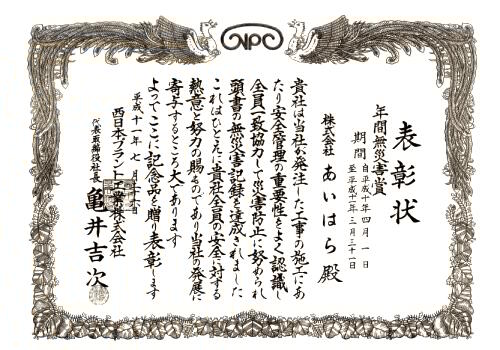 NPC
表彰状
年間無災害賞
期間 自平成十年四月一日
至平成十一年三月三十一日
株式会社 あいはら 殿
貴社は当社が発注した工事の施工にあ
たり安全管理の重要性をよく認識し
全員一致協力して災害防止に努められ
頭書の無災害記録を達成されました
これはひとえに貴社全員の安全に対する
熱意と努力の賜ものであり当社の発展に
寄与するところ大であります
よってここに記念品を贈り表彰します
平成十一年七月
西日本プラント工業株式会社
代表取締役社長 亀井吉次